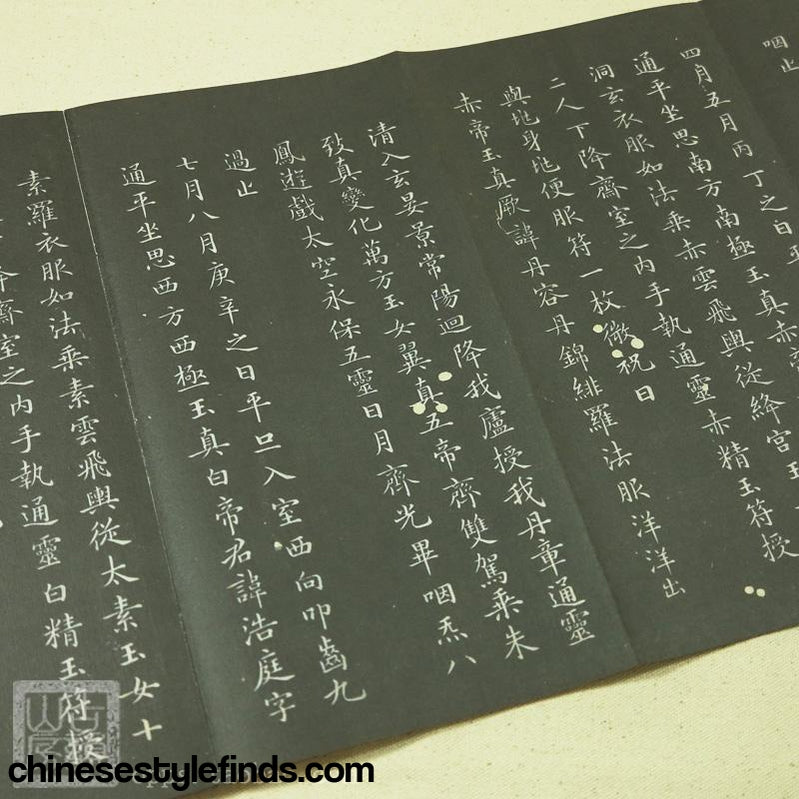 咽止
四月五月丙丁之日平
通平坐思南方南極玉真赤帝
洞玄衣服如法乘赤雲飛輿從絳宮玉
二人下降齋室之內手執通靈赤精玉符授
與地身地便服符一枚微祝曰
赤帝玉真厥諱丹容丹錦緋羅法服洋洋出
清入玄晏景常陽迴降我廬授我丹章通靈
致真變化萬方玉女翼真五帝齊雙駕乘朱
鳳遊戲太空永保五靈日月齊光畢咽炁八
過止
七月八月庚辛之日平旦入室西向叩齒九
通平坐思西方西極玉真白帝君諱浩庭字
素羅衣服如法乘素雲飛輿從太素玉女十
降齋室之內手執通靈白精玉符授
chinesestylefinds.com